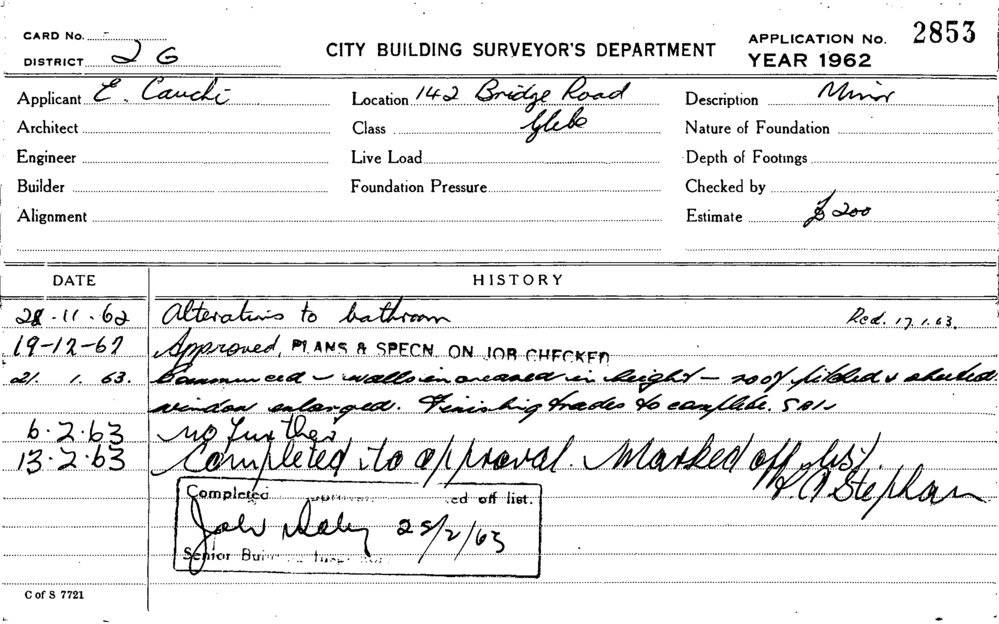 CARD No.
DISTRICT 2 G
CITY BUILDING SURVEYOR'S DEPARTMENT
APPLICATION No. 2853
YEAR 1962
Applicant E. Cauchi
Location 142 Bridge Road
Glebe
Description Minor
Architect
Class
Nature of Foundation
Engineer
Live Load
Depth of Footings
Builder
Foundation Pressure
Checked by
Alignment
Estimate £200
DATE HISTORY
28.11.62 Alterations to bathroom Red. 17.1.63.
19-12-62 Approved, PLANS & SPECN. ON JOB CHECKED
21. 1. 63. Commenced - walls increased in height - roof pitched & sheeted
window enlarged. Finishing trades to complete.
6.2.63 No further
13.2.63 Completed to approval. Marked off list.
Stephan
Completed ed off list.
John 25/2/63
Senior
C of S 7721